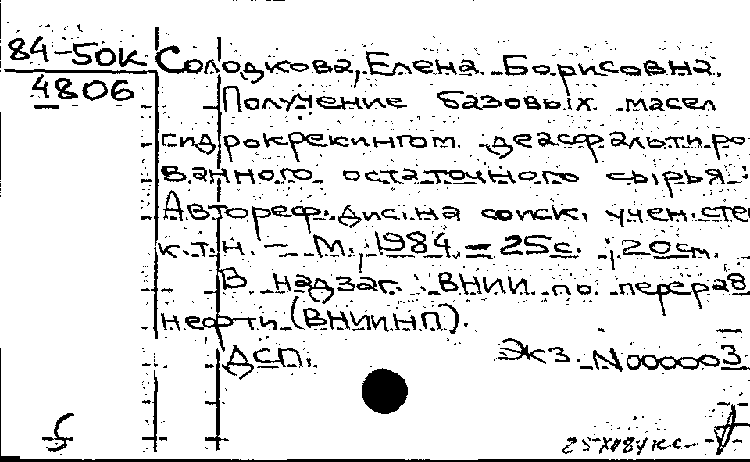 84-50к Солодкова, Елена Борисовна.
4806 Получение базовых масел
гидрокрекингом деасфальтиро
ванного остаточного сырья :
Автореф. дис. на соиск. учен. сте
к.т.н. - М., 1984. - 25 с. ; 20 см.
В надзаг. : ВНИИ по перераб
нефти (ВНИИНП).
ДСП. Экз. N000003